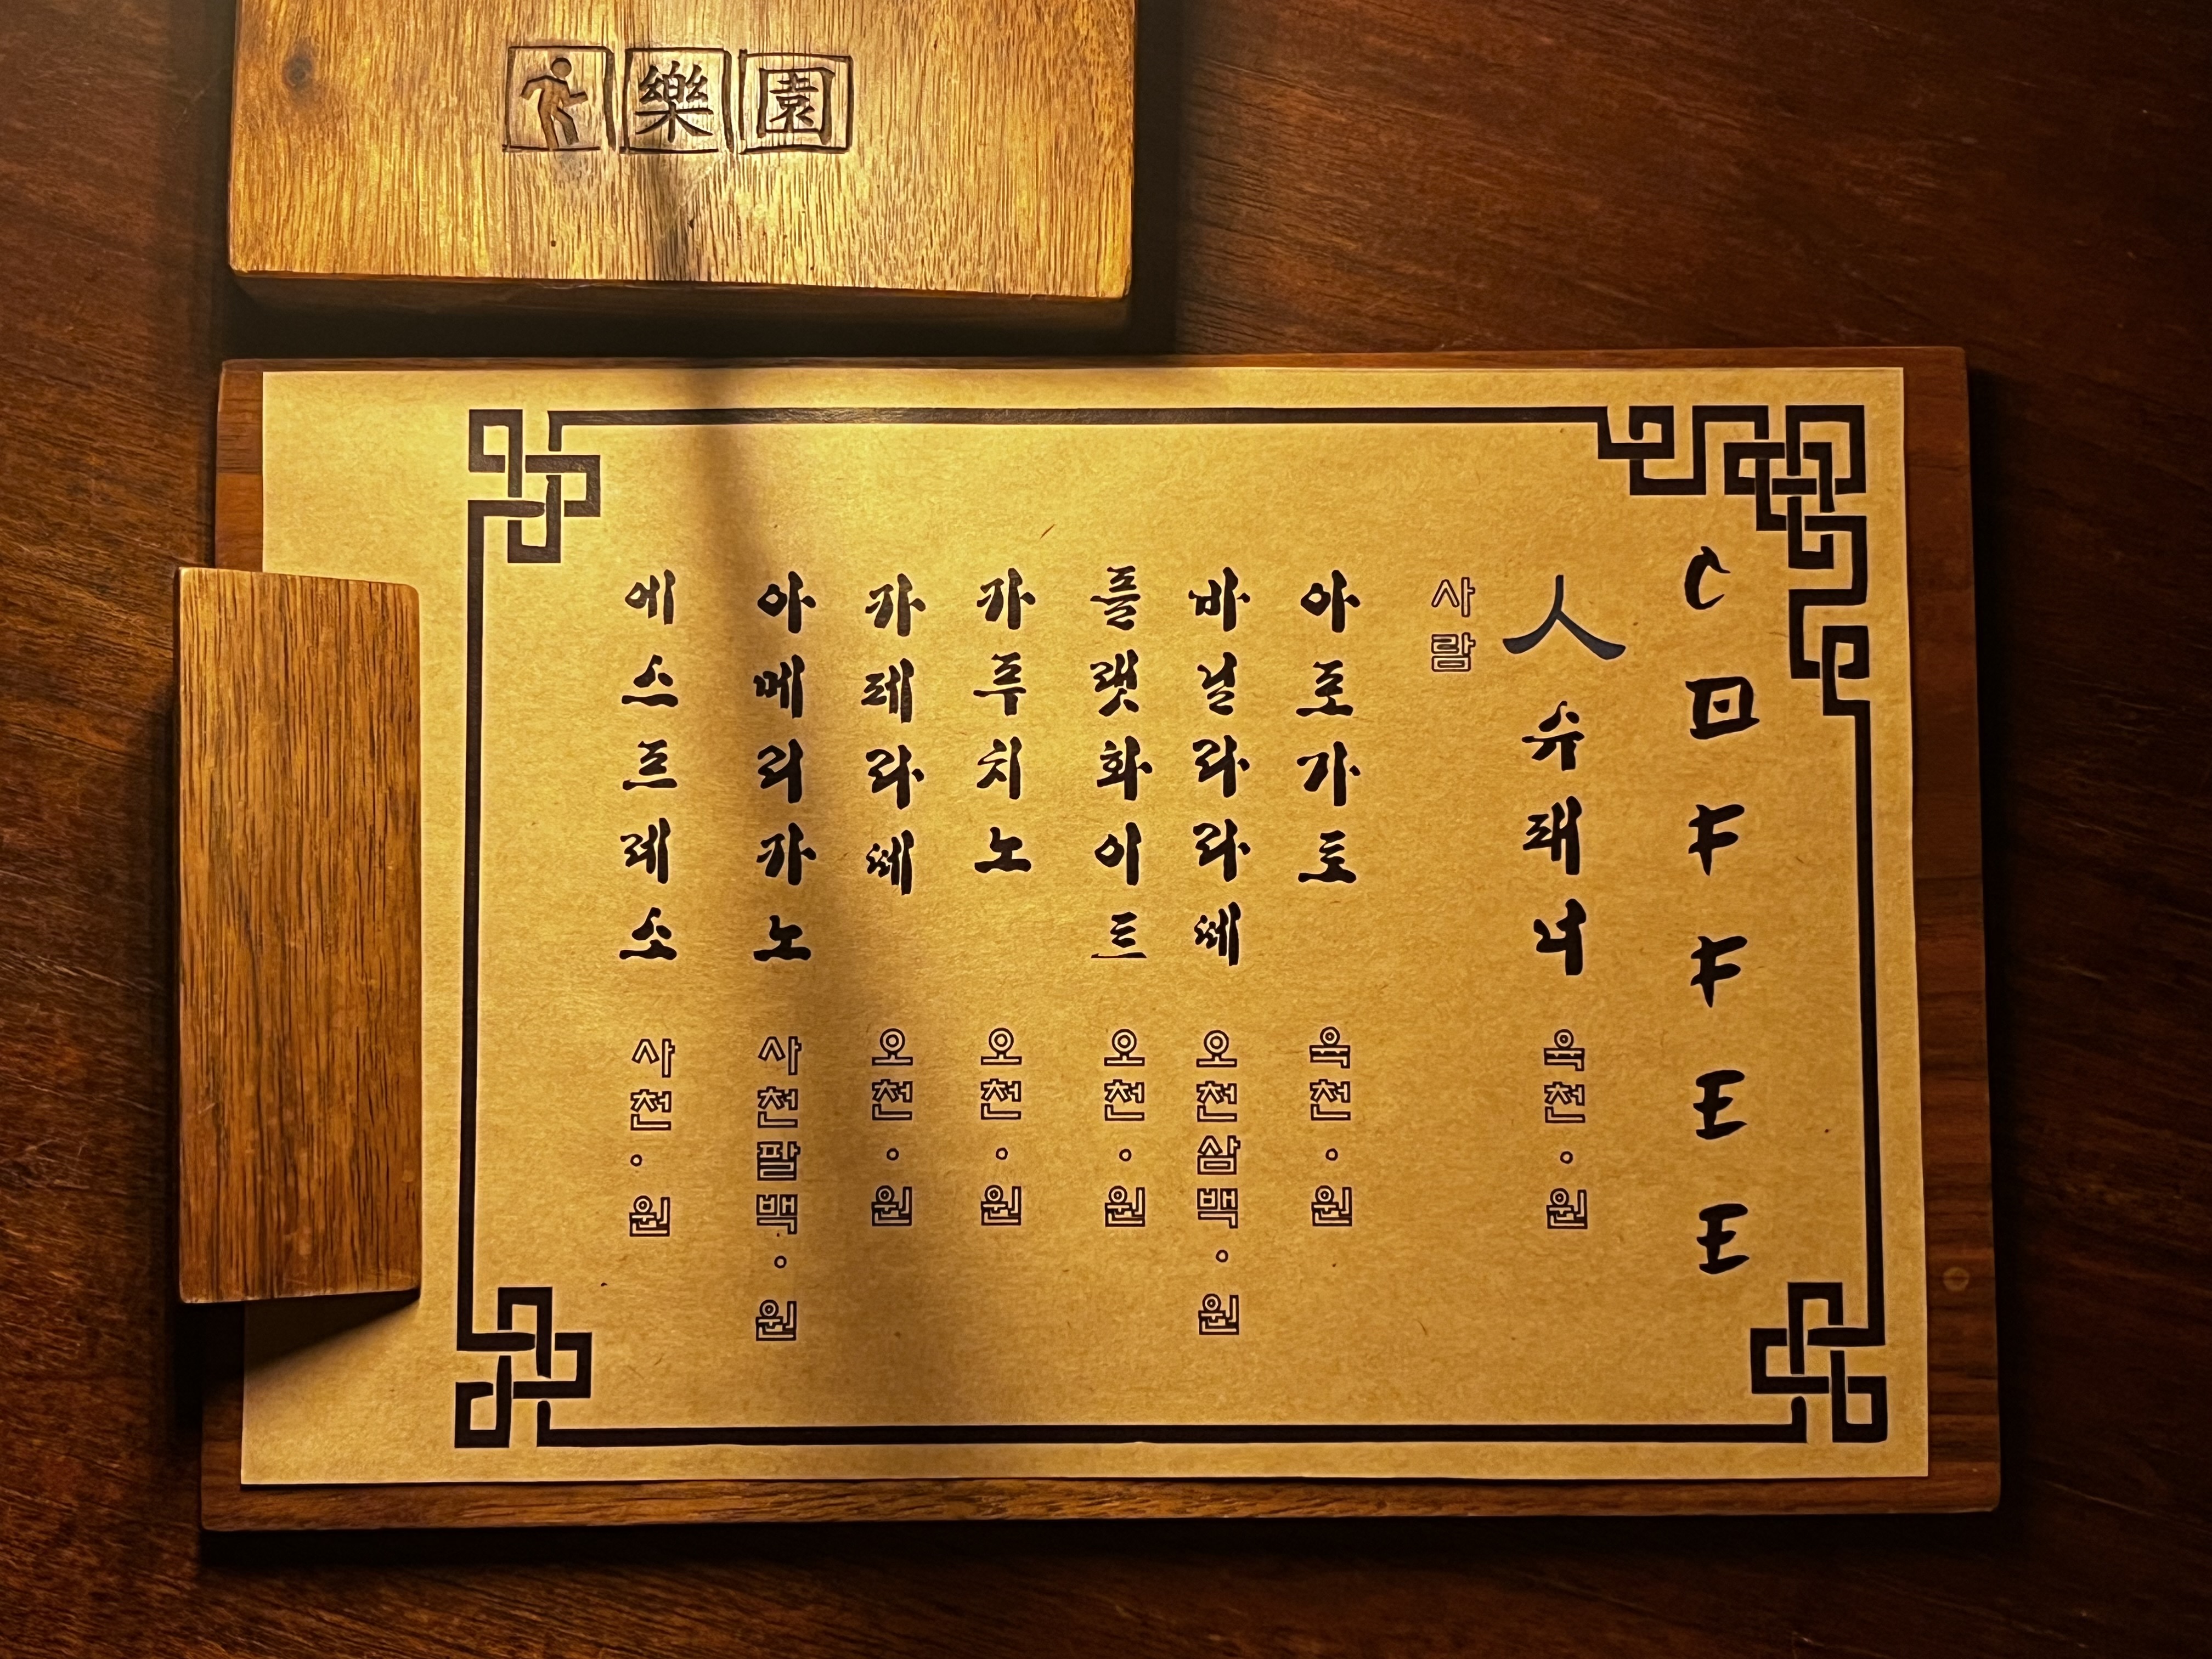 樂園
COFFEE
人슈페너 육천·원
사람
아포가토 육천·원
바닐라라떼 오천삼백·원
플랫화이트 오천·원
카푸치노 오천·원
카페라떼 오천·원
아메리카노 사천팔백·원
에스프레소 사천·원